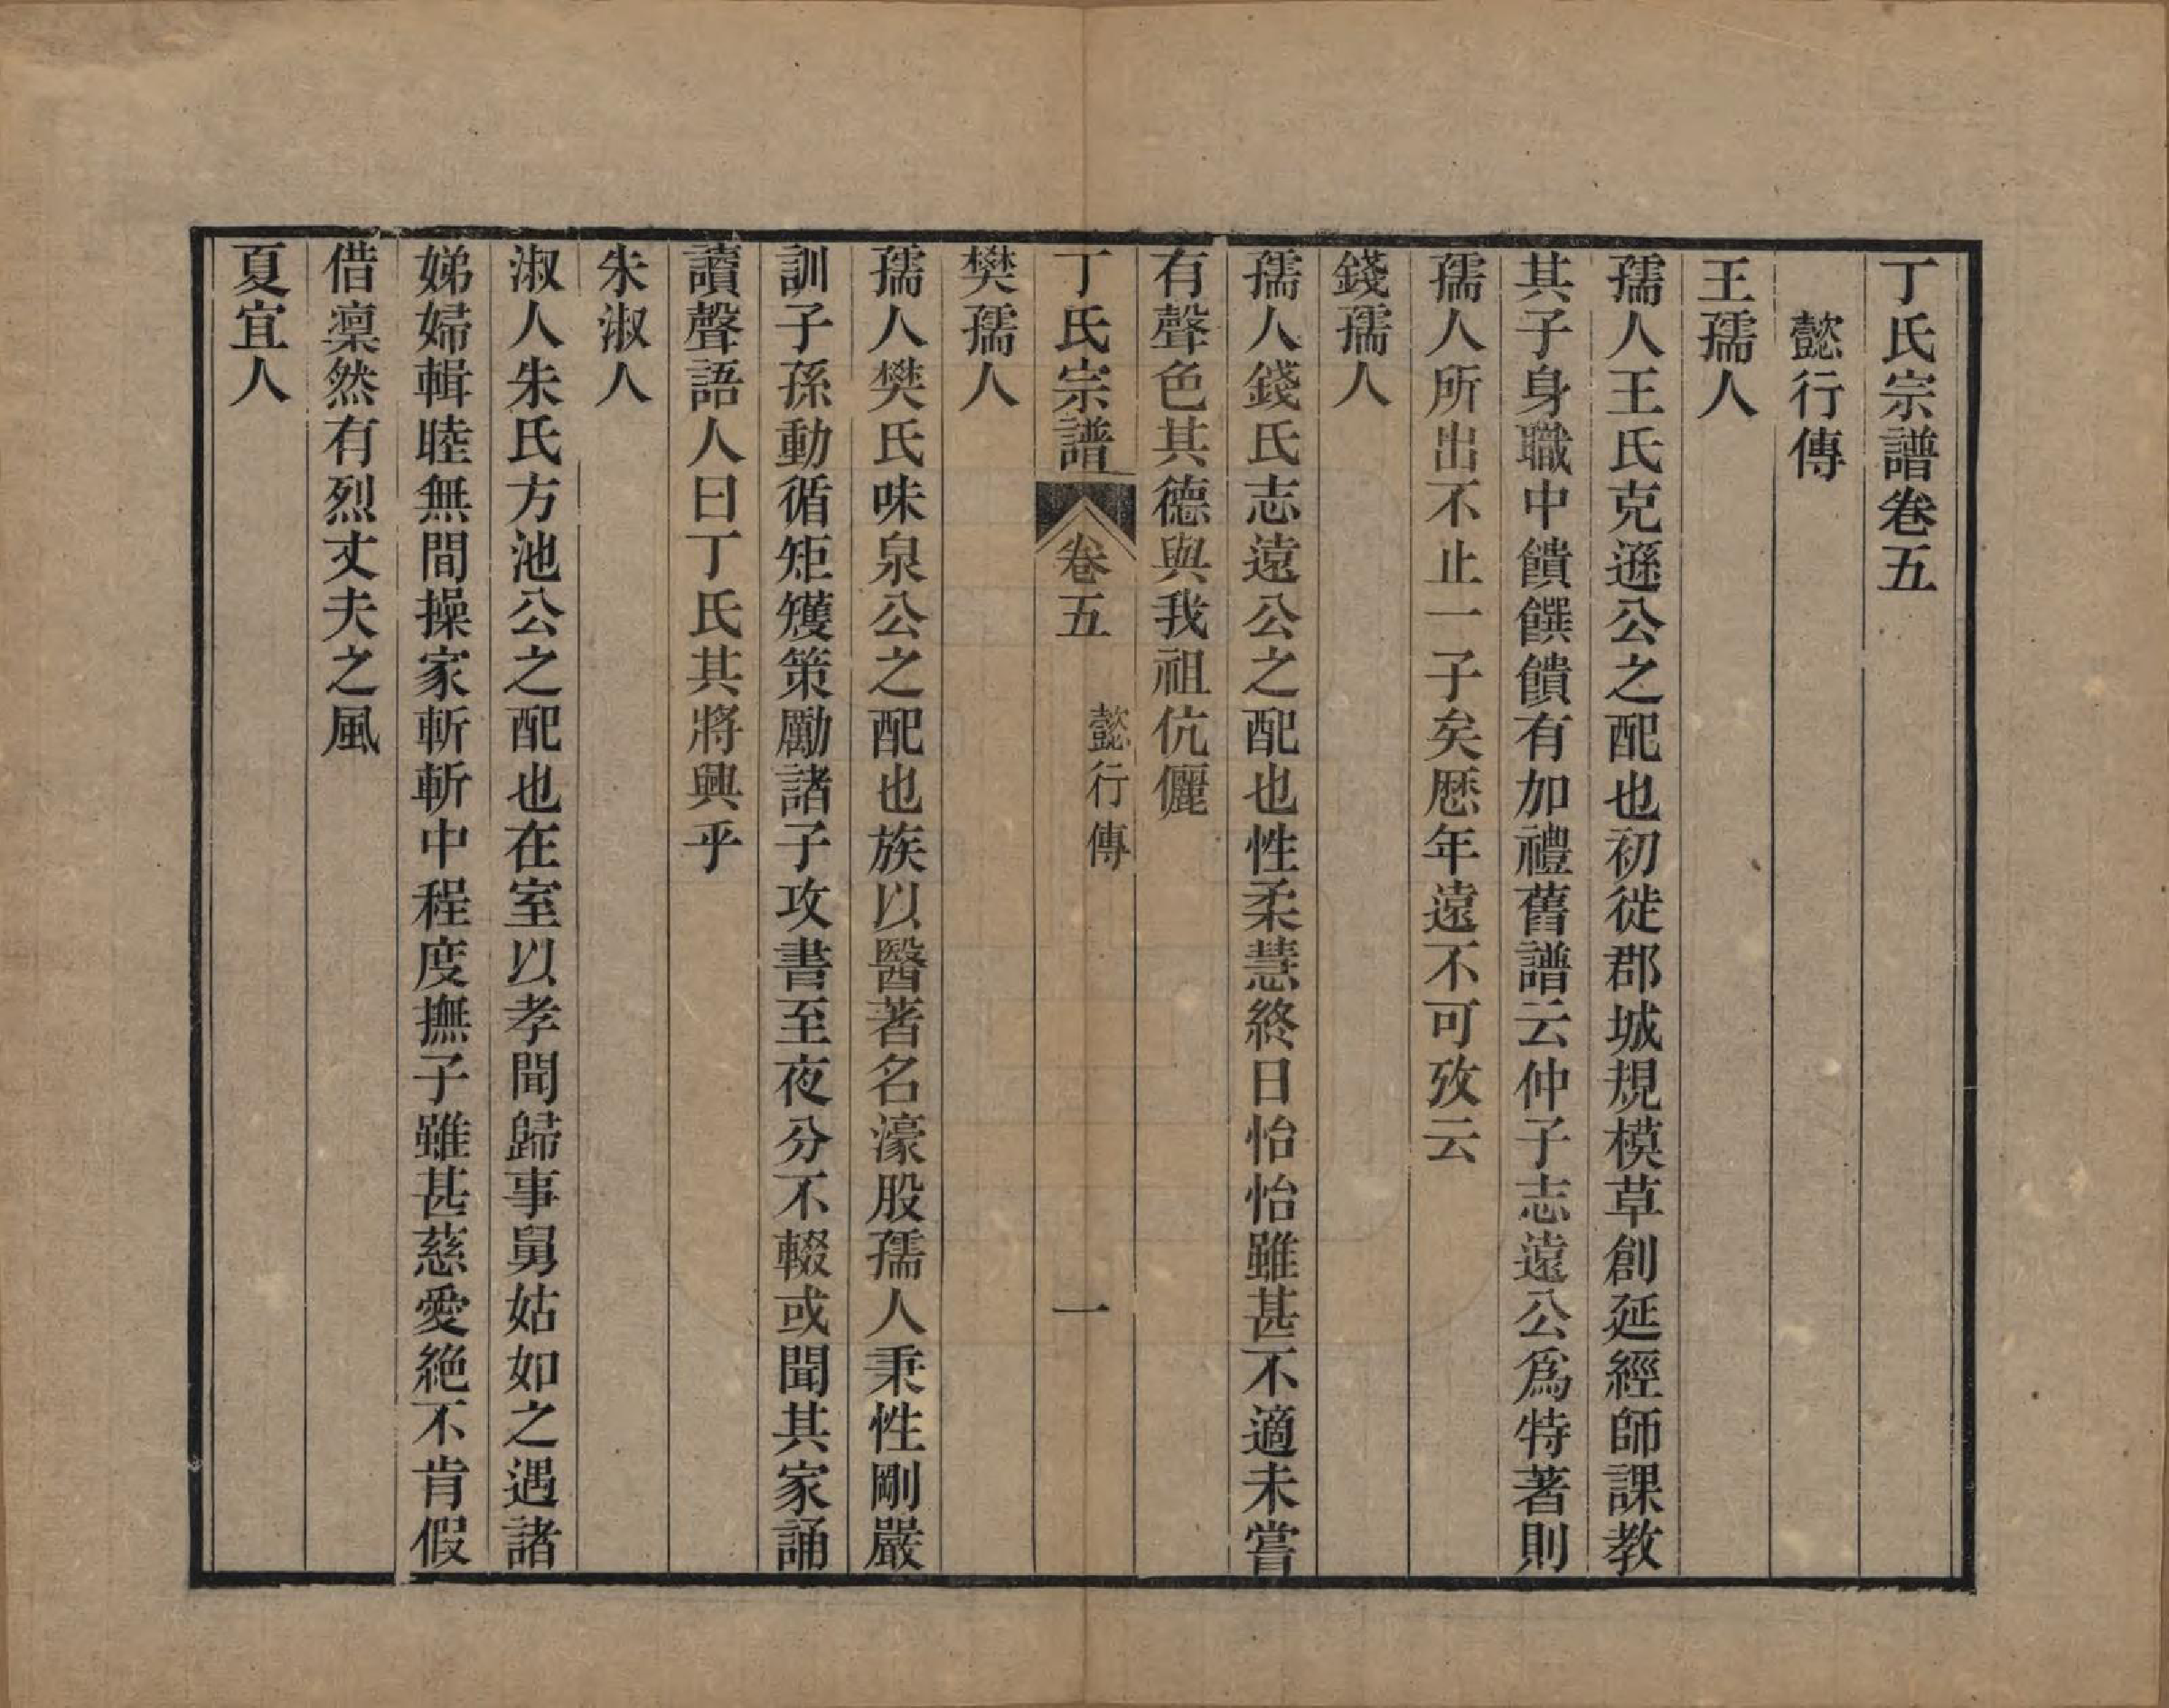 丁氏宗譜卷五
懿行傳
王孺人
孺人王氏克遜公之配也初徙郡城規模草創延經師課教
其子身職中饋饌饋有加禮舊譜云仲子志遠公爲特著則
孺人所出不止一子矣歷年遠不可攷云
錢孺人
孺人錢氏志遠公之配也性柔慧終日怡怡雖甚不適未嘗
有聲色其德與我祖伉儷
丁氏宗譜 卷五 懿行傳 一
樊孺人
孺人樊氏味泉公之配也族以醫著名濠股孺人秉性剛嚴
訓子孫動循矩矱策勵諸子攻書至夜分不輟或聞其家誦
讀聲語人曰丁氏其將興乎
朱淑人
淑人朱氏方池公之配也在室以孝聞歸事舅姑如之遇諸
娣婦輯睦無間操家斬斬中程度撫子雖甚慈愛絕不肯假
借凜然有烈丈夫之風
夏宜人